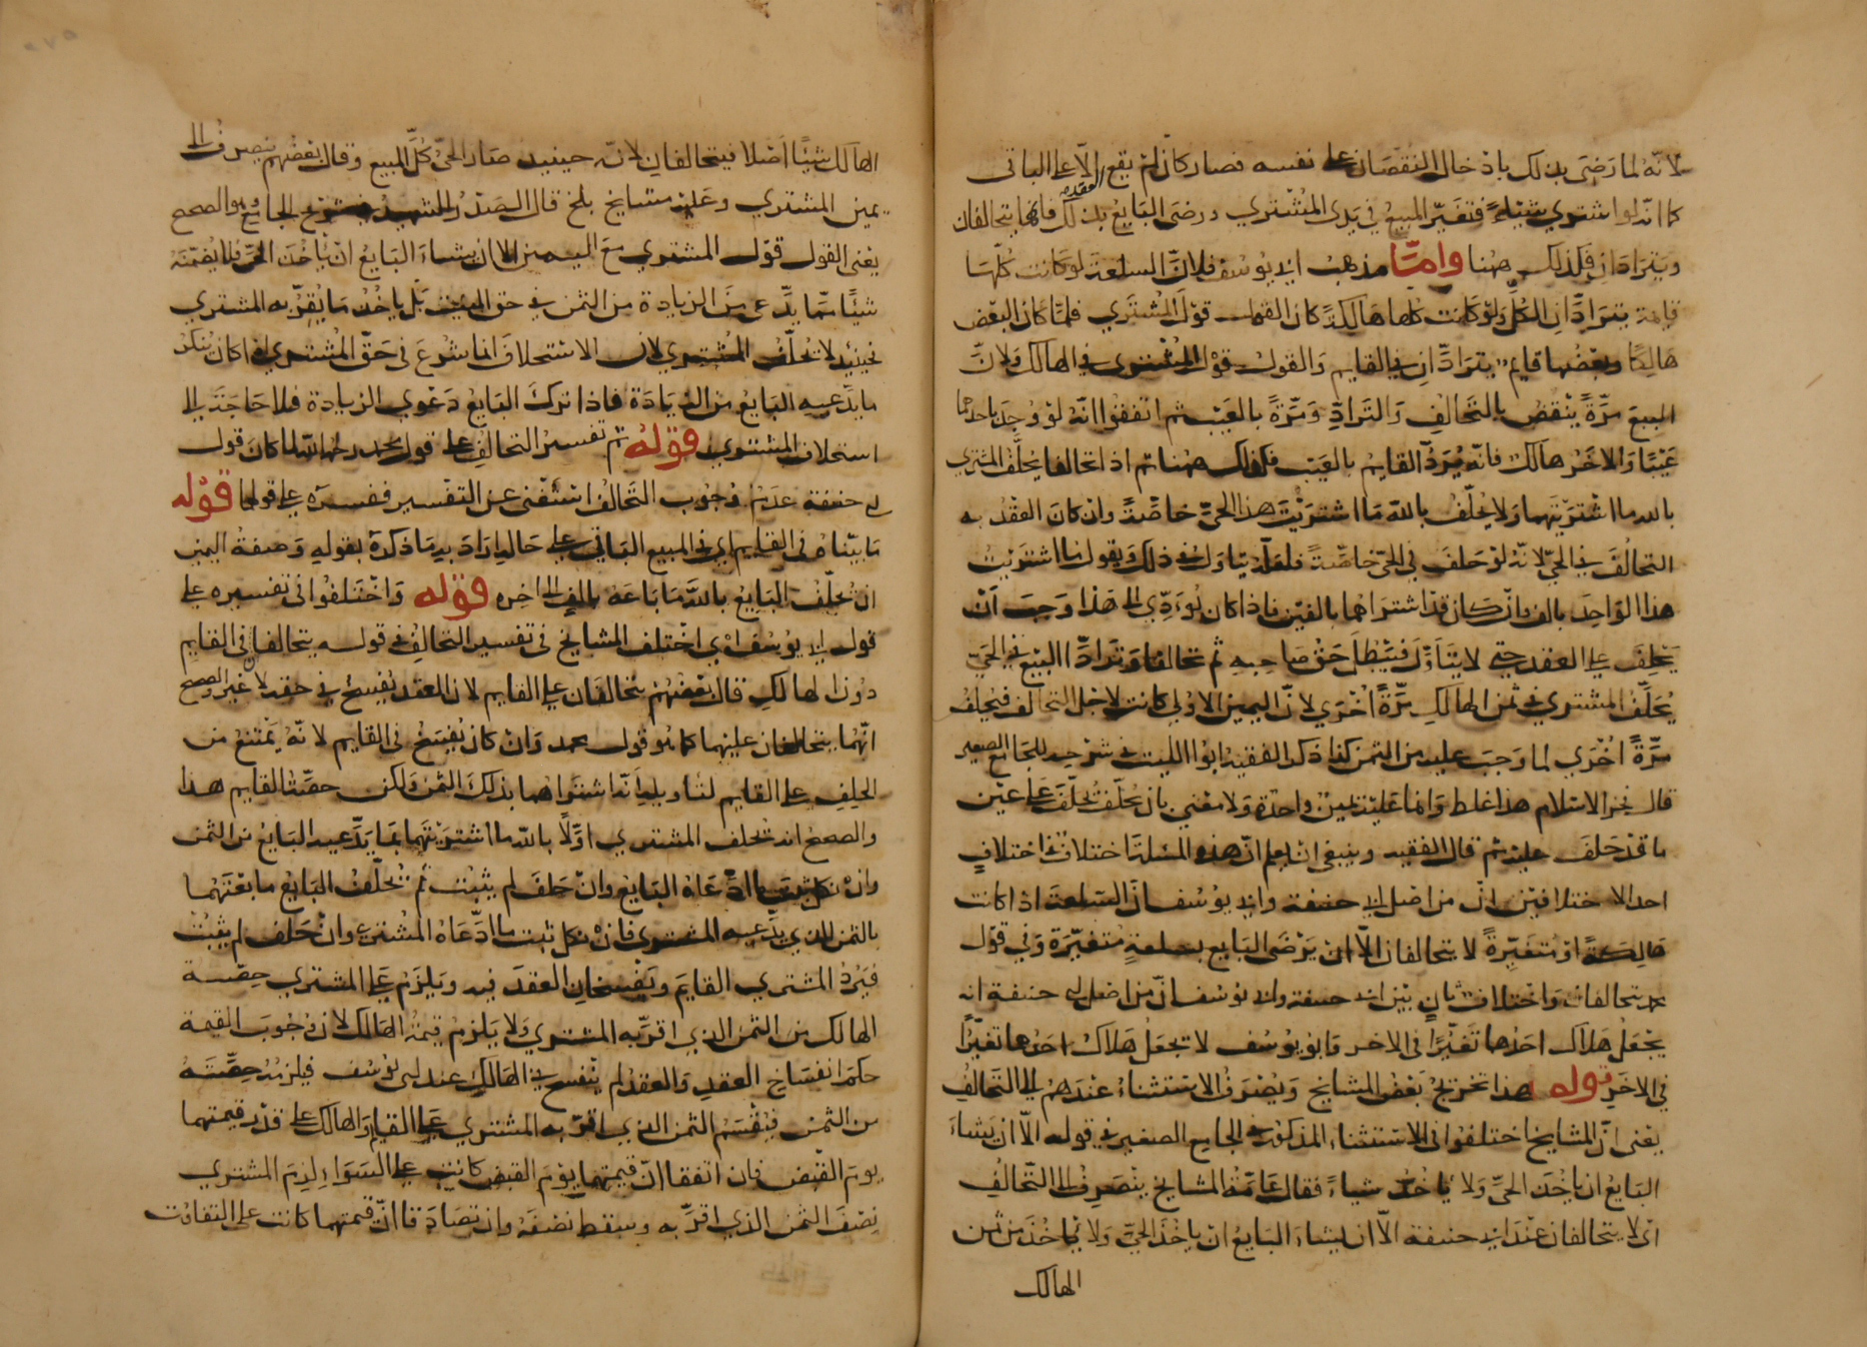 لانه لما رضي بذلك بادخال النقصان على نفسه فصار كان لم يقع العقد الا على الباقي
كما انه لو اشترى شيئا فتغير المبيع في يدي المشتري ورضي البايع بذلك فانهما يتحالفان
ويترادان فكذلك ههنا واما مذهب ابي يوسف فلان السلعة لو كانت كلها
قايمة يترادان الكل ولو كانت كلها هالكة كان القول قول المشتري فلما كان البعض
هالكا وبعضها قايم يترادان في القايم والقول قول المشتري في الهالك ولان
المبيع مرة ينقض بالتحالف والتراد ومرة بالعيب ثم اتفقوا انه لو وجد باحدهما
عيبا والاخر هالك فانه يرد القايم بالعيب فكذلك ههنا ثم اذا تحالفا يحلف المشتري
بالله ما اشتريتهما ولا يحلف بالله ما اشتريت هذا الحي خاصة وان كان العقد به
التحالف في الحي لانه لو حلف في الحي خاصة فلعله يتاول في ذلك ويقول ما اشتريت
هذا الواحد بالف وان كان قد اشتراهما بالفين فاذا كان يؤدي الى هذا وجب ان
يحلف على العقد حتى لا يتاول فيبطل حق صاحبه ثم تحالفا وترادا البيع في الحي
يحلف المشتري في ثمن الهالك مرة اخرى لان اليمين الاولى كانت لاجل التحالف فيحلف
مرة اخرى لما وجب عليه من الثمن كذا ذكر الفقيه ابوا الليث في شرحه للجامع الصغير
قال فخر الاسلام هذا غلط وانما عليه يمين واحدة ولا معنى بان يحلف يحلف على عين
ما قد حلف عليه ثم قال الفقيه وينبغي ان يعلم ان هذه المسئلة اختلاف في اختلاف
احد الاختلافين ان من اصل ابي حنيفة وابي يوسف ان السلعة اذا كانت
هالكة او متغيرة لا يتحالفان الا ان يرضى البايع بسلعة متغيرة وفي قول
محمد يتحالفان واختلاف ثان بين ابي حنيفة وابي يوسف ان من اصل ابي حنيفة انه
يجعل هلاك احدهما تغيرا في الاخر وابو يوسف لا يجعل هلاك احدهما تغيرا
في الاخر قوله هذا تخريج بعض المشايخ ويصرف الاستثناء عندهم الى التحالف
يعني ان المشايخ اختلفوا في الاستثناء المذكور في الجامع الصغير في قوله الا ان يشاء
البايع ان ياخذ الحي ولا ياخذ شياء فقال عامة المشايخ ينصرف الى التحالف
اي لا يتحالفان عند ابي حنيفة الا ان يشاء البايع ان ياخذ الحي ولا ياخذ من ثمن
الهالك
الهالك شيئا اصلا فيتحالفان لانه حينيد صار الحي كل المبيع وقال بعضهم ينصرف الى
يمين المشتري وعليه مشايخ بلخ قال الصدر الشهيد في شرح الجامع وهو الصحيح
يعني القول قول المشتري مع اليمين الا ان يشاء البايع ان ياخذ الحي فلا يضمنه
شيئا مما يدعي من الزيادة من الثمن في حق الميت بل ياخذ ما يقر به المشتري
فحينئذ لا يحلف المشتري لان الاستحلاف انما شرع في حق المشتري اذا كان ينكر
ما يدعيه البايع من الزيادة فاذا ترك البايع دعوى الزيادة فلا حاجة الى
استحلاف المشتري قوله ثم تفسير التحالف على قول محمد رحمه الله لما كان قول
ابي حنيفة عدم وجوب التحالف استغنى عن التفسير ففسره على قولهما قوله
ما بيناه في القايم اي في المبيع الباقي على حاله اراد به ما ذكره بقوله وصفة اليمين
ان يحلف البايع بالله ما باعه بالف الى اخره قوله واختلفوا في تفسيره على
قول ابي يوسف اي اختلف المشايخ في تفسير التحالف في قوله يتحالفا في القايم
دون الهالك قال بعضهم يتحالفان على القايم لان العقد يفسخ في حقه لا غير والصحيح
انهما يتحالفان عليهما كما هو قول محمد وان كان يفسخ في القايم لانه يمتنع من
الحلف على القايم لتاويله انه اشتراهما بذلك الثمن ولكن حصة القايم هذا
والصحيح انه يحلف المشتري اولا بالله ما اشتريتهما بما يدعيه البايع من الثمن
وان نكل ثبت ما ادعاه البايع وان حلف لم يثبت ثم يحلف البايع ما بعتهما
بالثمن الذي يدعيه المشتري فان نكل ثبت ما ادعاه المشتري وان حلف لم يثبت
فيرد المشتري القايم ويفسخان العقد فيه ويلزم على المشتري حصة
الهالك من الثمن الذي اقر به المشتري ولا يلزم قيمة الهالك لان وجوب القيمة
حكم انفساخ العقد والعقد لم ينفسخ في الهالك عند ابي يوسف فيلزمه حصته
من الثمن فيقسم الثمن الذي اقر به المشتري على القايم والهالك على قدر قيمتهما
يوم القبض فان اتفقا ان قيمتهما يوم القبض كانت على السواء لزم المشتري
نصف الثمن الذي اقر به وسقط نصفه وان تصادقا ان قيمتهما كانت على التفاوت